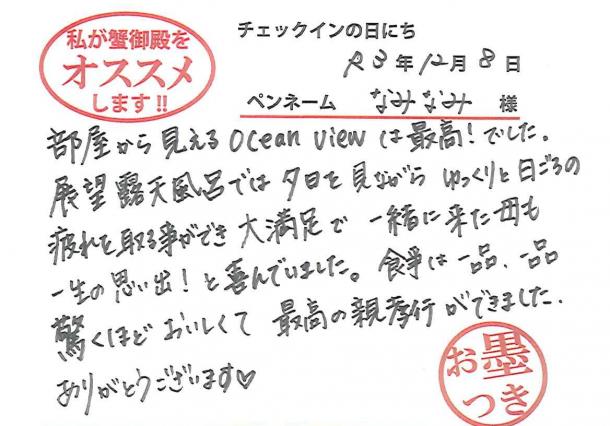 私が蟹御殿を
オススメ
します!!
チェックインの日にち
R3年12月8日
ペンネーム なみなみ 様
部屋から見えるocean viewは最高!でした。
展望露天風呂では夕日を見ながらゆっくりと日ごろの
疲れを取る事ができ大満足で一緒に来た母も
一生の思い出!と喜んでいました。食事は一品、一品
驚くほどおいしくて最高の親孝行ができました.
ありがとうございます♡
お墨
つき